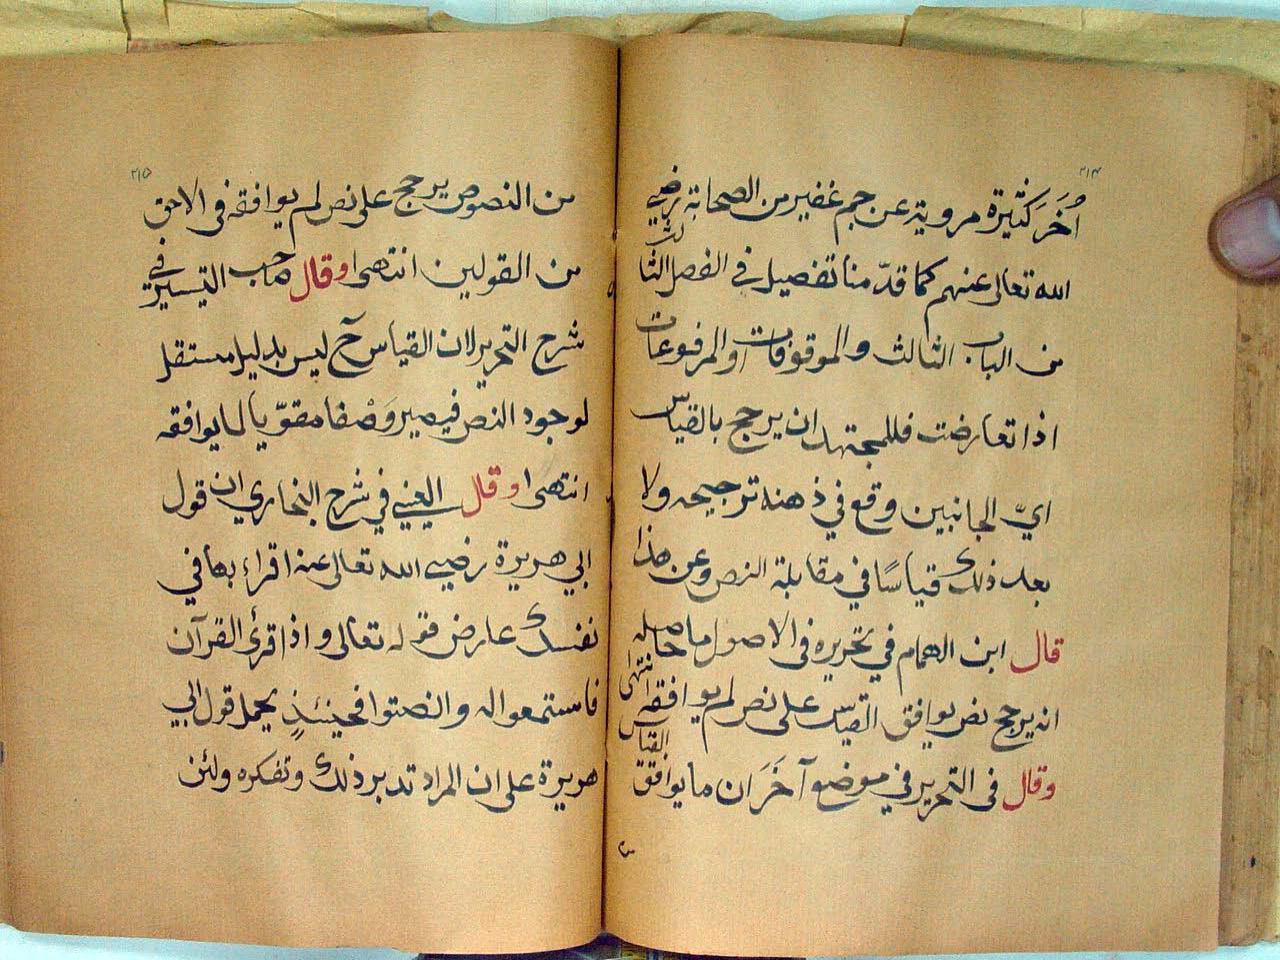 ٢١٤
أُخَرَ كَثيرة مروية عن جم غفير من الصحابة رضي
الله تعالى عنهم كما قدّمنا تفصيله في الفصل الثالث
من الباب الثالث والموقوفات او المرفوعات
اذا تعارضت فللمجتهد ان يرجح بالقياس
ايّ الجانبين وقع في ذهنه ترجيحه ولا
بعد ذلك قياسًا في مقابلة النص وعن هذا
قال ابن الهمام في تحريره في الاصول ما حاصله
انه يرجح نص يوافق القياس على نص لم يوافقه انتهى
وقال في التحرير في موضع آخَرَ ان ما يوافق القياس
٢١٥
من النصوص يرجح على نص لم يوافقه في الاحق
من القولين انتهى وقال صاحب التيسير في
شرح التحرير لان القياس ح ليس بدليل مستقل
لوجود النص فيصير وَصْفا مقوّيا لما يوافقه
انتهى وقال العيني في شرح البخاري ان قول
ابي هريرة رضي الله تعالى عنه اقراء بها في
نفسك عارض قوله تعالى واذا قرئ القرآن
فاستمعوا له وانصتوا فحينئذٍ يحمل قول ابي
هريرة على ان المراد تدبر ذلك وتفكره ولئن